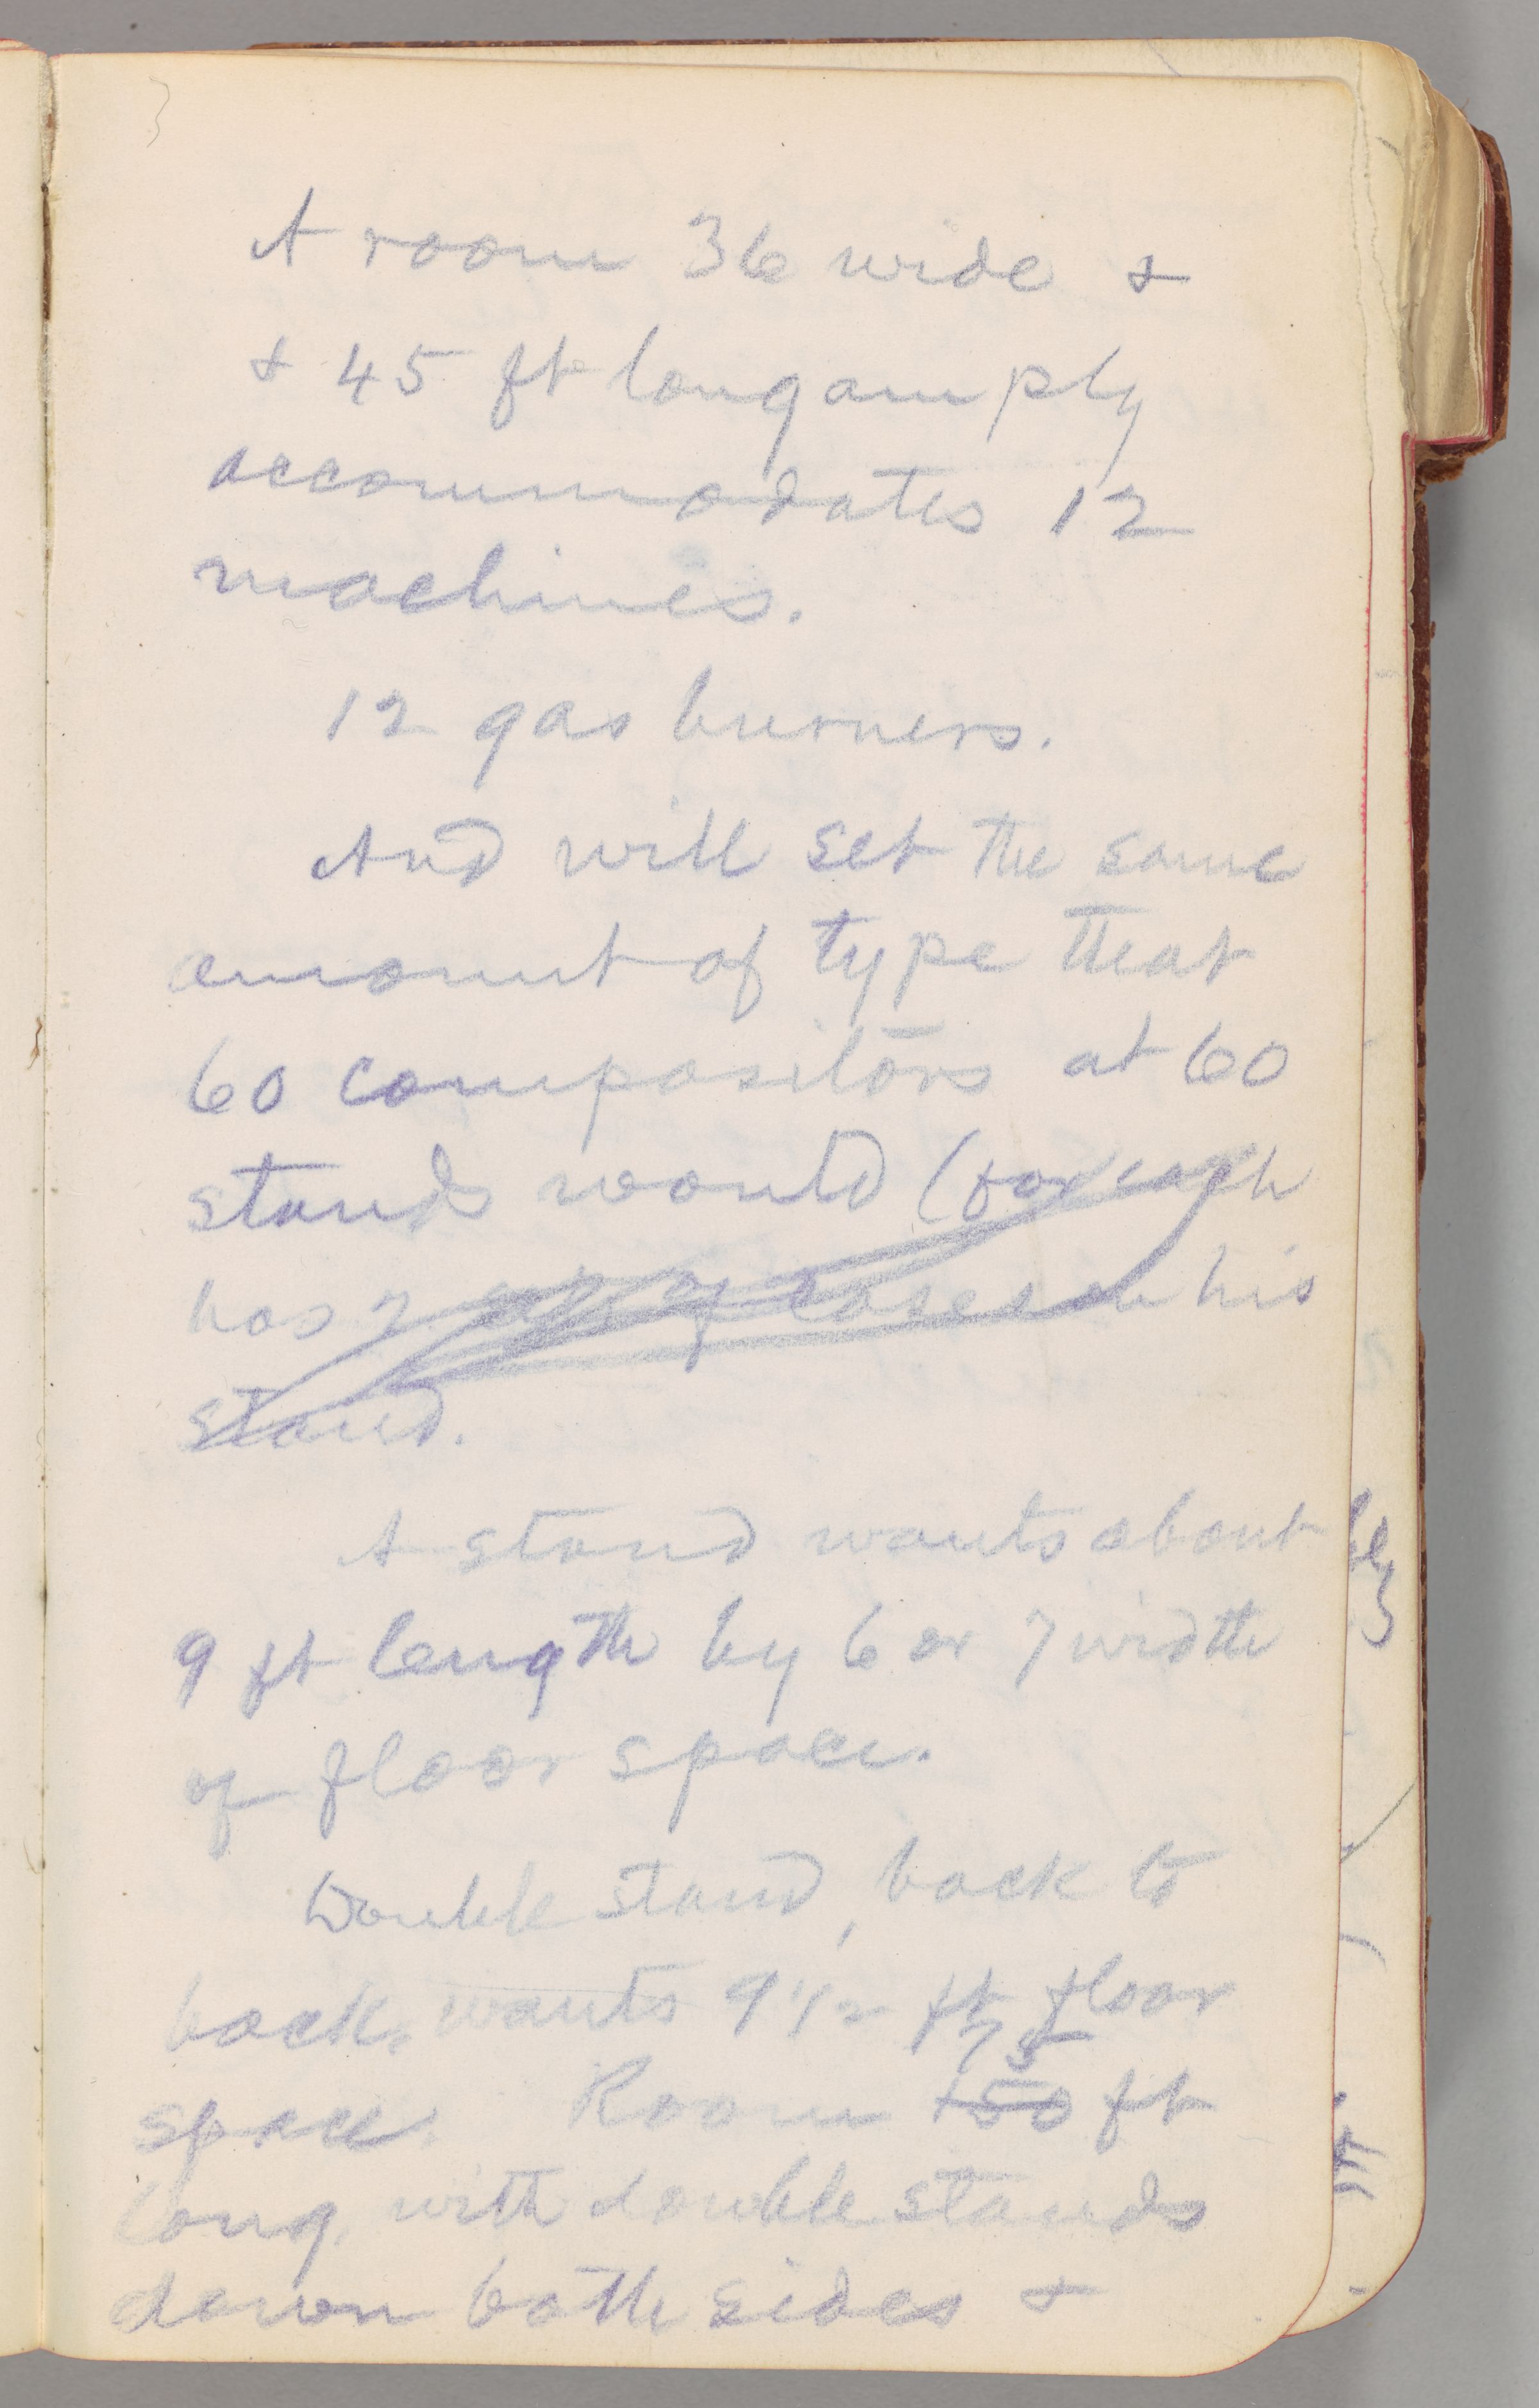 A room 36 wide &
& 45 ft long amply
accommodates 12
machines.
12 gas burners.
And will set the same
amount of type that
60 compositors at 60
stands would (for each
has 2 of cases on his
stand.
A stand wants about
9 ft length by 6 or 7 width
of floor space.
Double stand, back to
back, wants 9 1/2 ft floor
space. Room 150 75 ft
long, with double stands
down both sides &